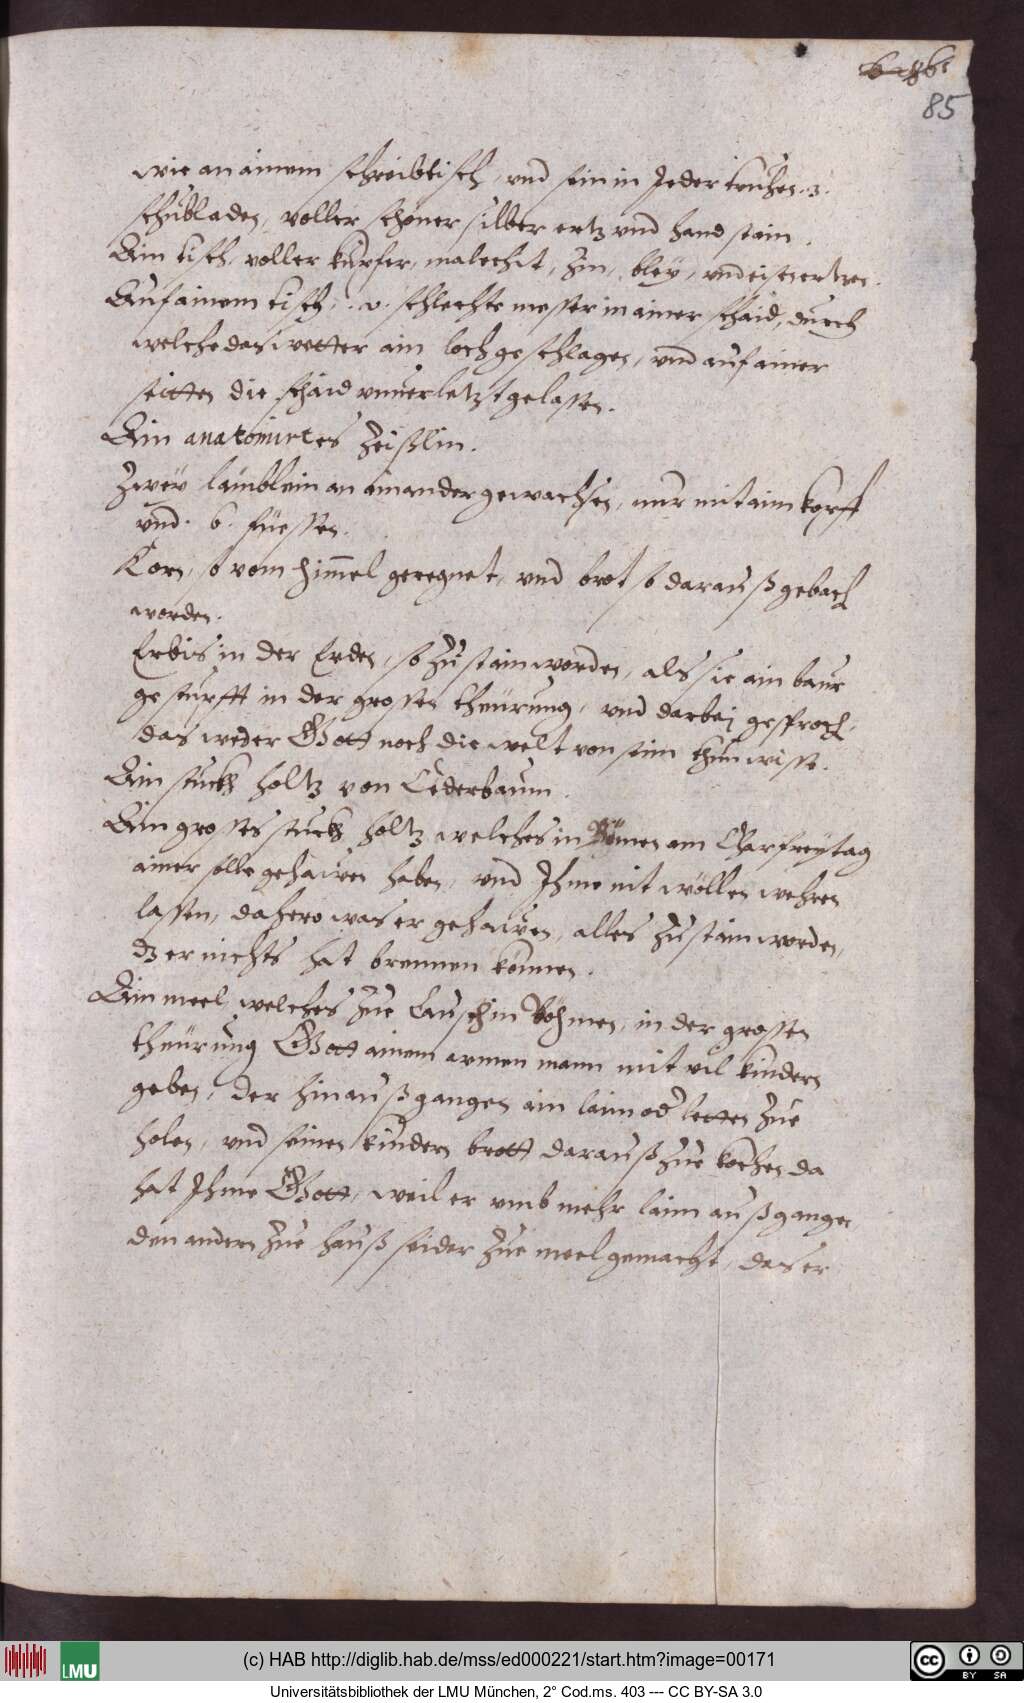 85
wie an ainem schreibtisch, vnd sein in Jeder truhen .3.
schubladen, voller schöner silber ertz vnd hand stain.
Ain tisch voller kupfer, malechit, zin, bley, vnd eisen ertzen.
Auf ainem tisch .v. schlechte messer in ainer schaid, durch
welche das wetter ain loch geschlagen, vnd auf ainer
seitten die schaid vnuerletzt gelassen.
Ain anatomirtes Zeißlin.
Zwey lämblein an ainander gewachsen, nur mit aim kopff
vnd .6. füessen.
Korn, so vom himmel geregnet, vnd brot so darauß gebach
worden.
Erbis in der Erden, so zu stain worden, als sie ain baur
gesturfft in der grossen theürung, vnd darbej gesproch
das weder Gott noch die welt von seim thun wisse.
Ain stuckh holtz von Cederbaum.
Ain grosses stuckh holtz welches in Bömen am Charfreytag
ainer solle gehawen haben, vnd Ihme nit wöllen wehren
lassen, dahero was er gehawen, alles zu stain worden,
dz er nichts hat brennen können.
Ain meel, welches zue Lausch in Böhmen, in der grossen
theürung Gott ainem armen mann mit vil kindern
geben, der hinauß gangen ain laim od letten zue
holen, vnd seinen kindern brott darauß zue kochen da
hat Ihme Gott, weil er vmb mehr laim außgangen
den andern zue hauß seider zue meel gemacht, das er
LMU
(c) HAB http://diglib.hab.de/mss/ed000221/start.htm?image=00171
cc BY SA
Universitätsbibliothek der LMU München, 2° Cod.ms. 403 --- CC BY-SA 3.0